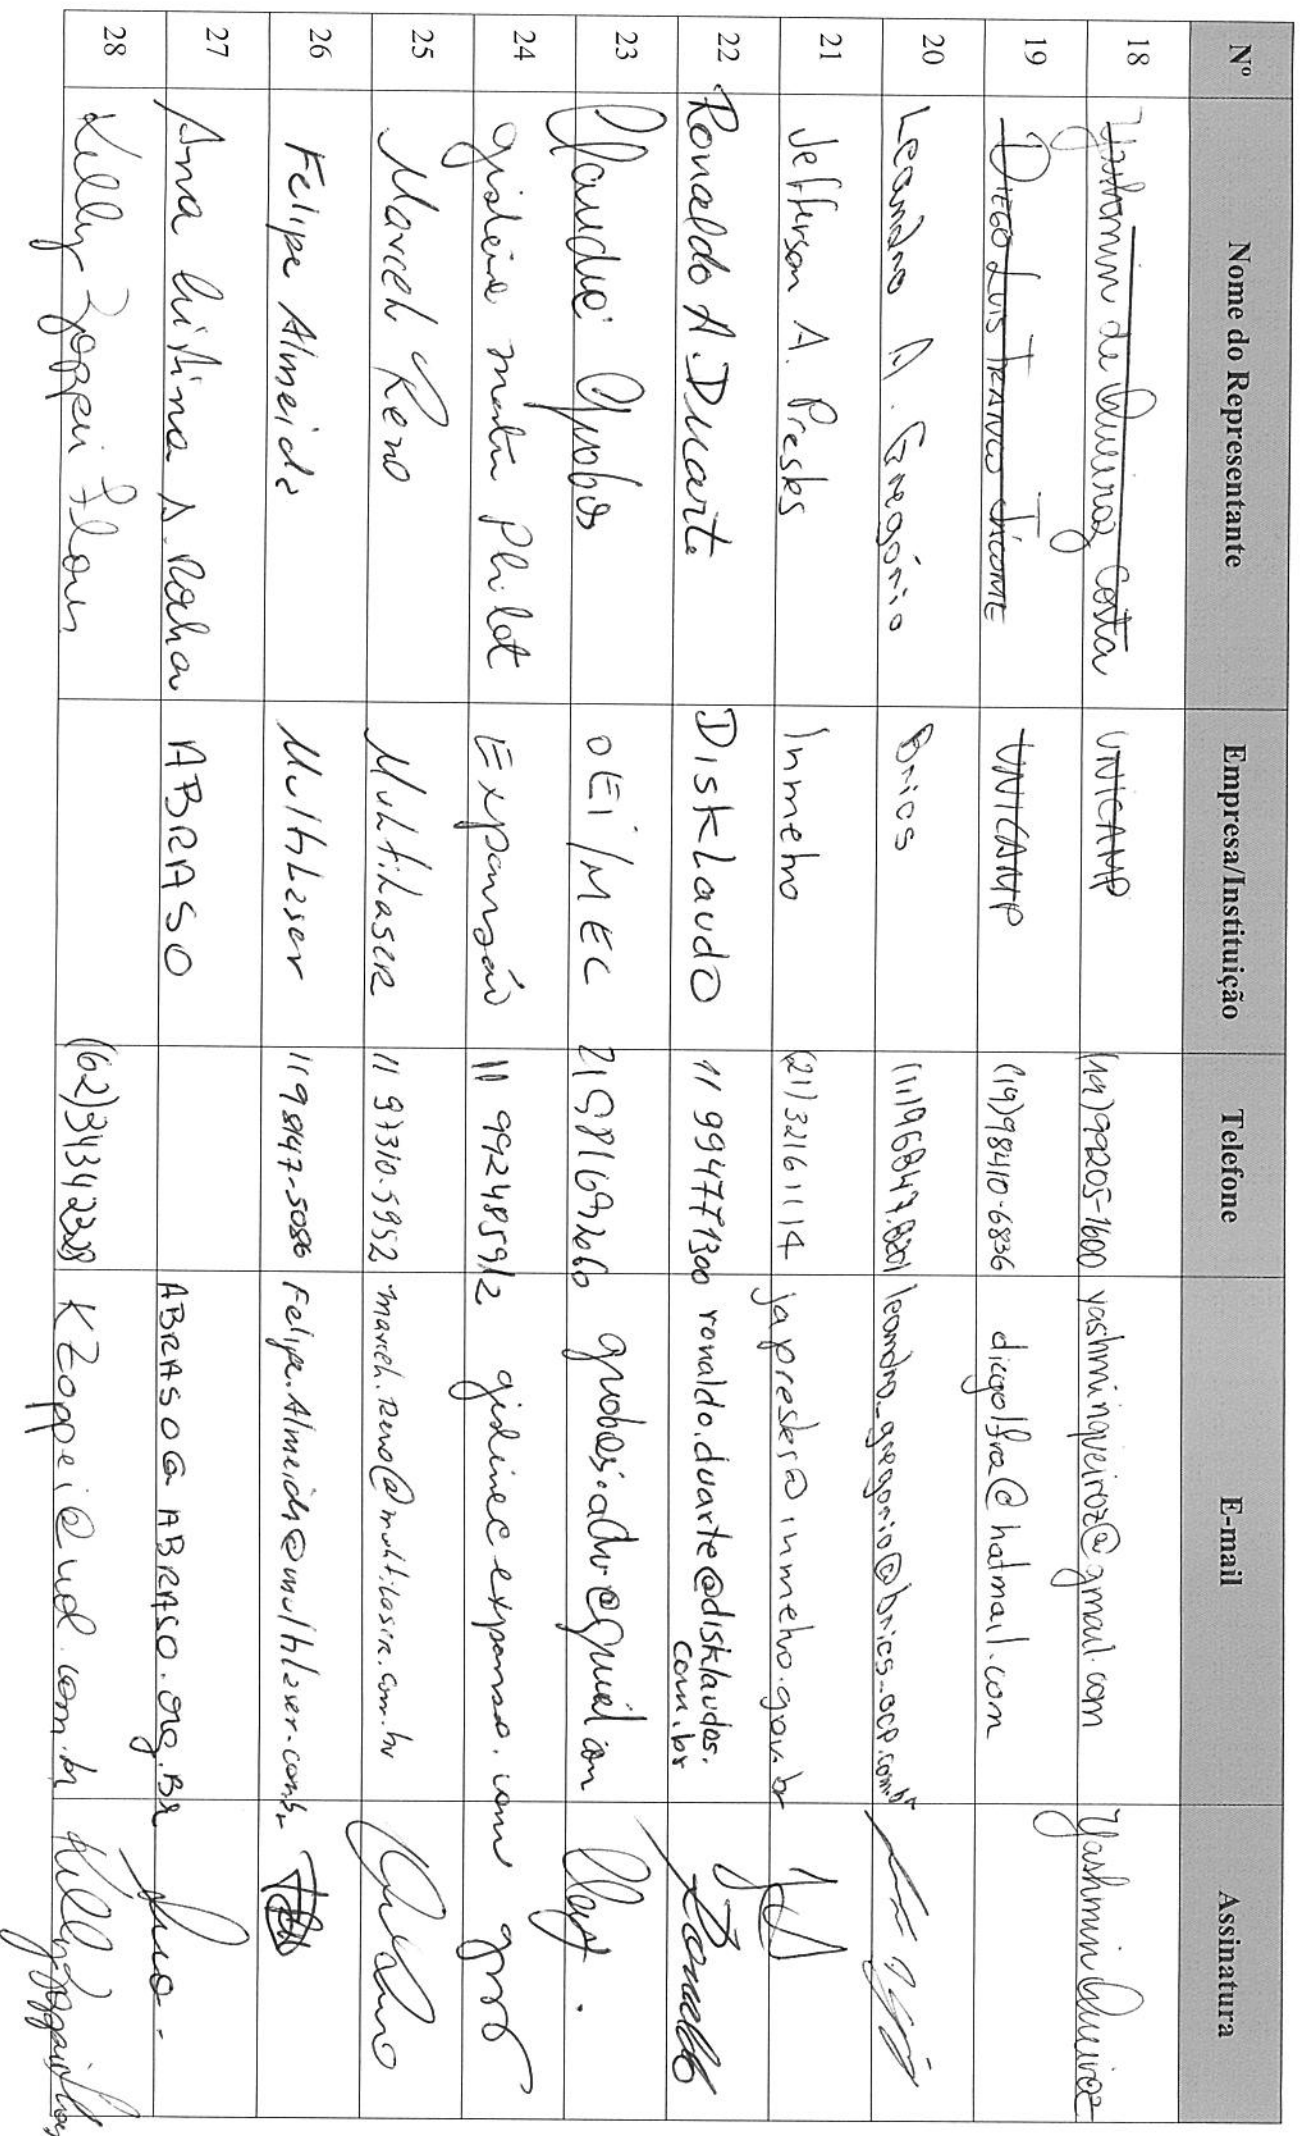 Nº Nome do Representante Empresa/Instituição Telefone E-mail Assinatura
18 Yashmin de Queiroz Costa UNICAMP (19)99205-1600 yashminqueiroz@gmail.com Yashmin Queiroz
19 DIEGO LUIS FRANCO JÁCOME UNICAMP (19)98410-6836 diegolfra@hotmail.com
20 Leandro A. Gregório Brics (11)96847.8201 leandro_gregorio@brics-ocp.com.br
21 Jefferson A. Prestes Inmetro (21)32161114 japrestes@inmetro.gov.br
22 Ronaldo A. Duarte DiskLaudo 11 994771300 ronaldo.duarte@disklaudos.com.br Ronaldo
23 OEI/MEC 21981692660
24 Expansão 11 992485912
25 Marceli Reno Multilaser 11 97310.5952 marceli.reno@multilaser.com.br
26 Felipe Almeida Multilaser 11 9847-5086 Felipe.Almeida@multilaser.com.br
27 Ana Cristina S. Rocha ABRASO ABRASO@ABRASO.ORG.BR
28 Kelly Zoppei Flores (62)34342328 Kzoppei@ud.com.br Kelly Zoppei Flores